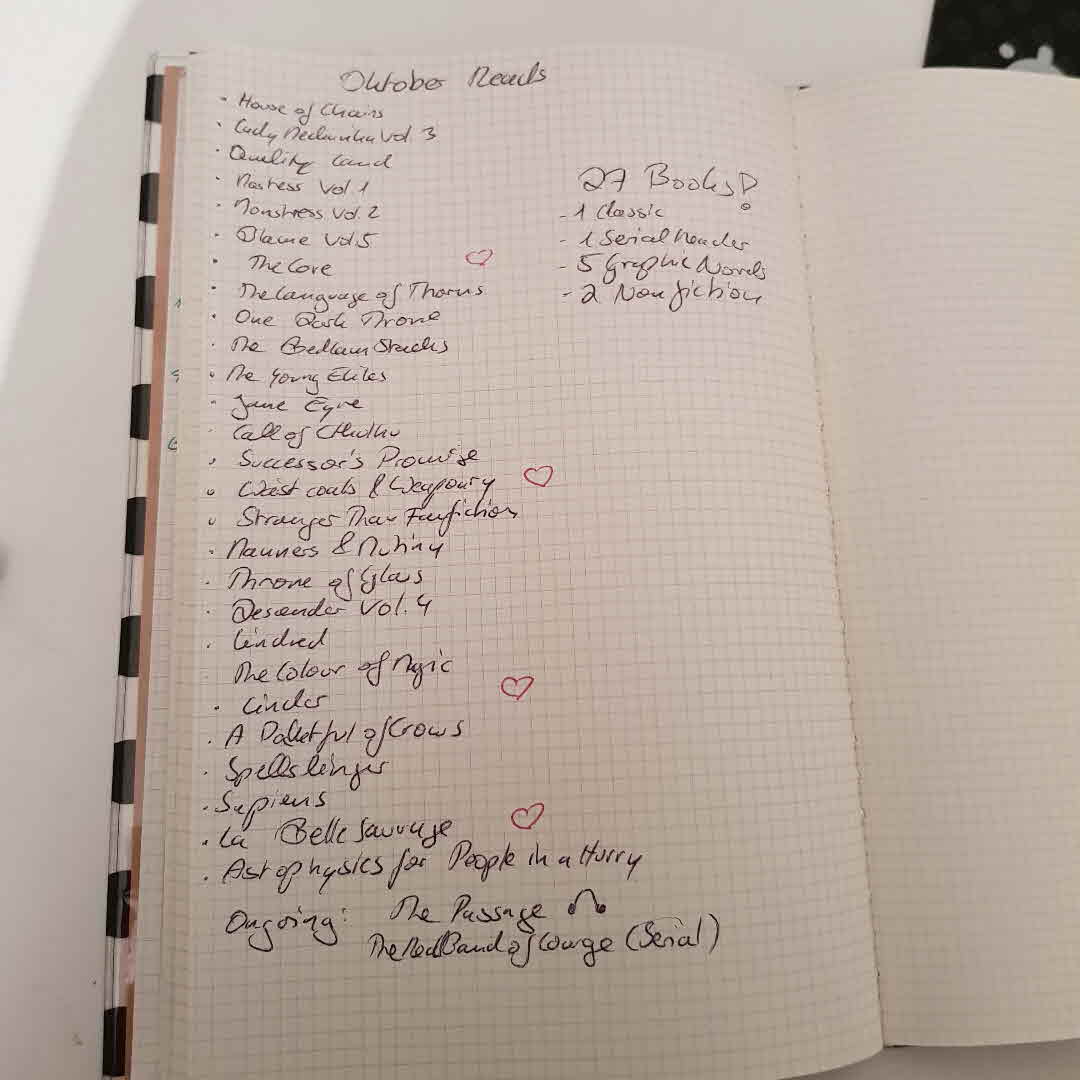 Oktober Reads
· House of Chains
· Lady Mechanika Vol. 3
· Quality Land
· Mostress Vol. 1
· Monstress Vol. 2
· Blame Vol. 5
· The Core
· The Language of Thorns
· One Dark Throne
· The Bedlam Stacks
· The Young Elites
· Jane Eyre
· Call of Cthulhu
· Successor's Promise
· Waistcoats & Weaponry
· Stranger Than Fanfiction
· Manners & Mutiny
· Throne of Glass
· Descender Vol. 4
· Kindred
The Colour of Magic
· Cinder
· A Pocketful of Crows
· Spellslinger
· Sapiens
· La Belle Sauvage
· Astophysics for People in a Hurry
Ongoing: The Passage
The Red Band of Courge (Serial)
27 Books!
- 1 Classic
- 1 Serial Reader
- 5 Graphic Novels
- 2 Non fiction